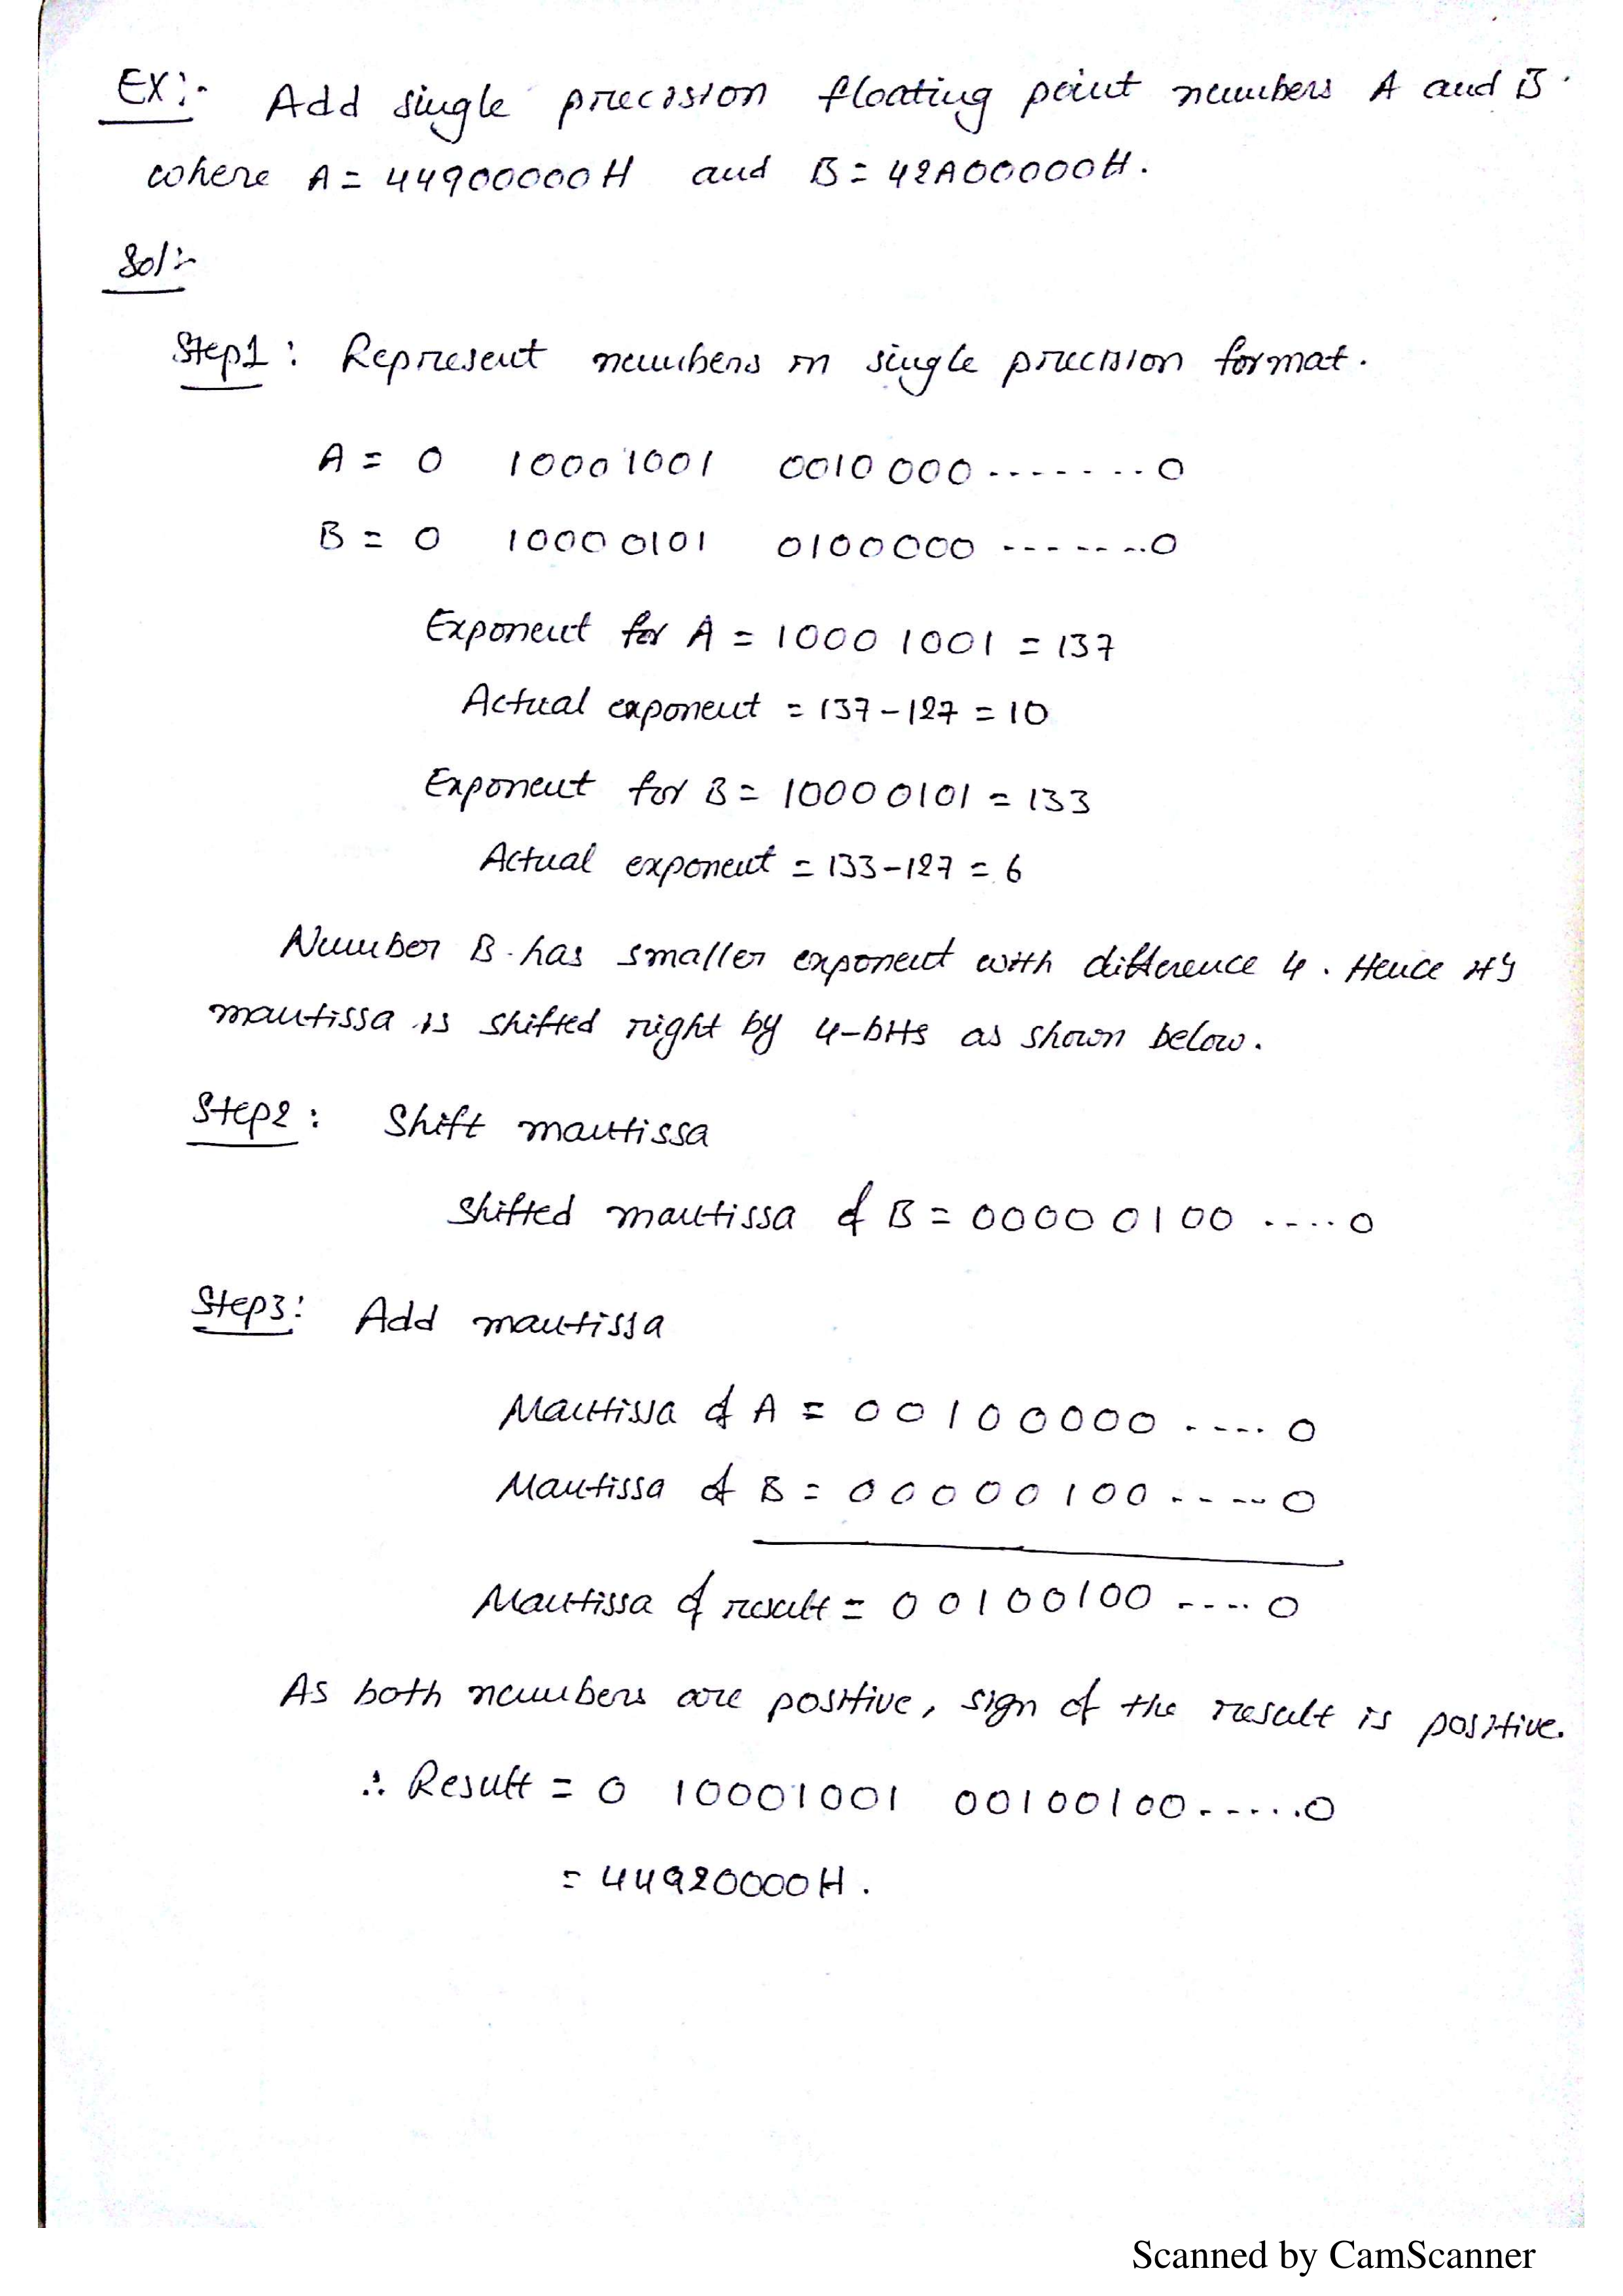 Ex:- Add single precision floating point numbers A and B.
where A = 44900000H and B = 42A00000H.
Sol:-
Step1: Represent numbers in single precision format.
A = 0 10001001 0010000.......0
B = 0 10000101 0100000.......0
Exponent for A = 1000 1001 = 137
Actual exponent = 137-127 = 10
Exponent for B = 10000101 = 133
Actual exponent = 133-127 = 6
Number B has smaller exponent with difference 4. Hence its
mantissa is shifted right by 4-bits as shown below.
Step2: Shift mantissa
Shifted mantissa of B = 00000100 ....0
Step3: Add mantissa
Mantissa of A = 00100000 ....0
Mantissa of B = 00000100 ....0
Mantissa of result = 00100100 ....0
As both numbers are positive, sign of the result is positive.
∴ Result = 0 10001001 00100100......0
= 44920000H.
Scanned by CamScanner